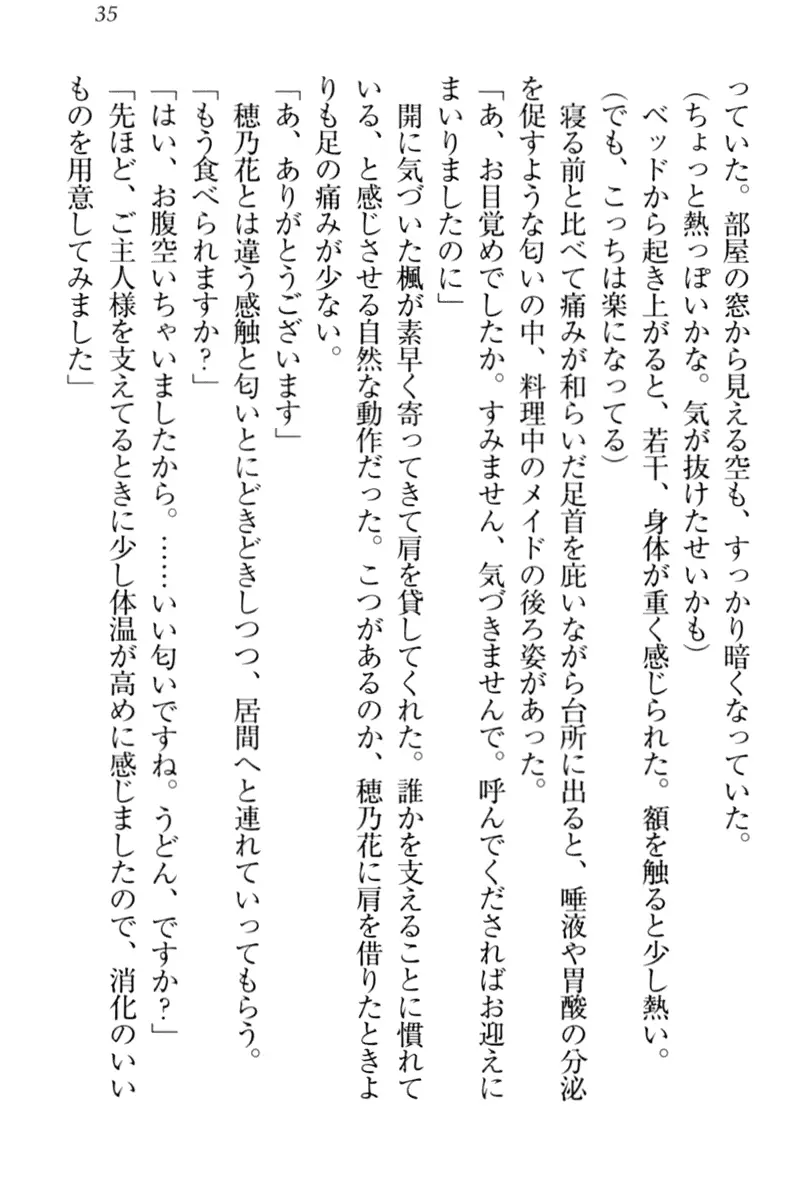 35
っていた。部屋の窓から見える空も、すっかり暗くなっていた。
(ちょっと熱っぽいかな。気が抜けたせいかも)
　ベッドから起き上がると、若干、身体が重く感じられた。額を触ると少し熱い。
(でも、こっちは楽になってる)
　寝る前と比べて痛みが和らいだ足首を庇いながら台所に出ると、唾液や胃酸の分泌
を促すような匂いの中、料理中のメイドの後ろ姿があった。
「あ、お目覚めでしたか。すみません、気づきませんで。呼んでくださればお迎えに
まいりましたのに」
　開に気づいた楓が素早く寄ってきて肩を貸してくれた。誰かを支えることに慣れて
いる、と感じさせる自然な動作だった。こつがあるのか、穂乃花に肩を借りたときよ
りも足の痛みが少ない。
「あ、ありがとうございます」
　穂乃花とは違う感触と匂いとにどきどきしつつ、居間へと連れていってもらう。
「もう食べられますか?」
「はい、お腹空いちゃいましたから。……いい匂いですね。うどん、ですか?」
「先ほど、ご主人様を支えてるときに少し体温が高めに感じましたので、消化のいい
ものを用意してみました」